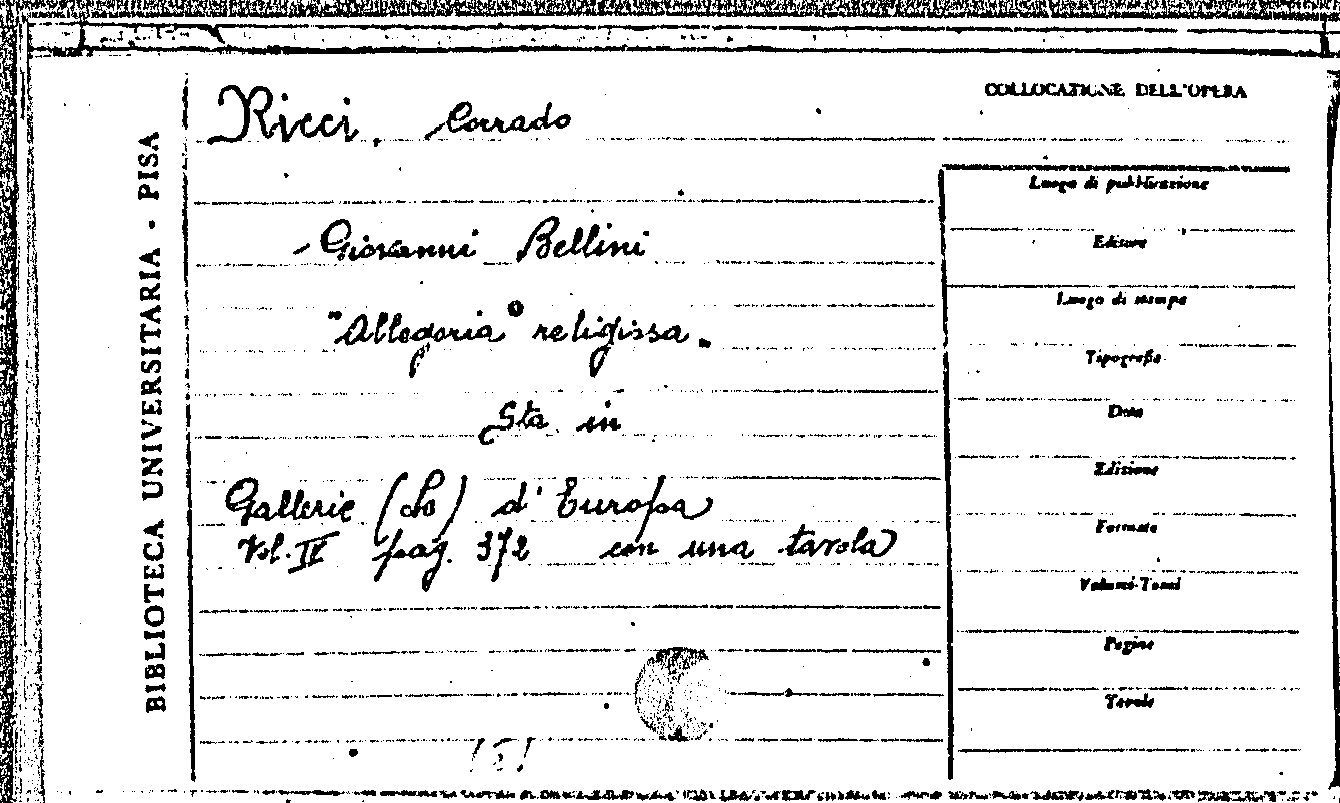 BIBLIOTECA UNIVERSITARIA - PISA
Ricci, Corrado
Giovanni Bellini
"Allegoria" religiosa.
Sta in
Gallerie (le) d'Europa
Vol. IV pag. 372 con una tavola
COLLOCAZIONE DELL'OPERA
Luogo di pubblicazione
Editore
Luogo di stampa
Tipografia
Data
Edizione
Formato
Volumi-Tomi
Pagine
Tavole